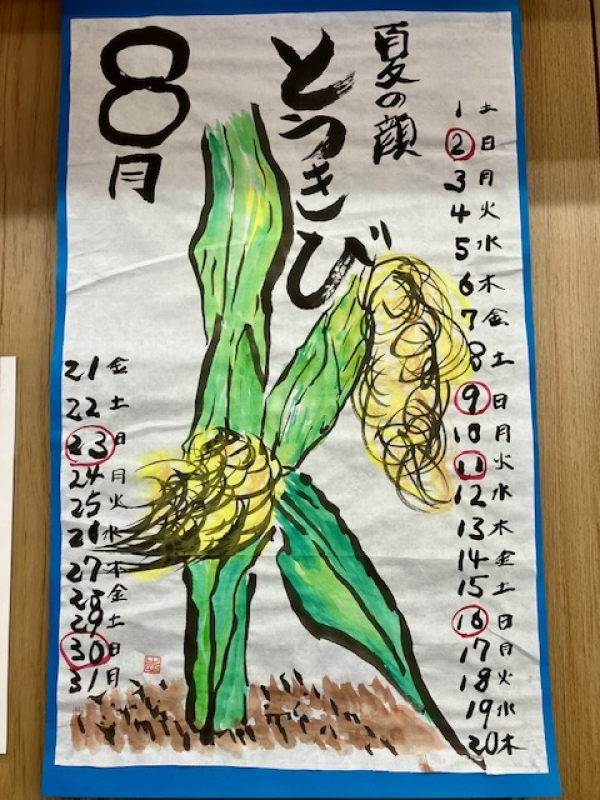 8月
夏の顔
とうきび
1 土
2 日
3 月
4 火
5 水
6 木
7 金
8 土
9 日
10 月
11 火
12 水
13 木
14 金
15 土
16 日
17 月
18 火
19 水
20 木
21 金
22 土
23 日
24 月
25 火
26 水
27 木
28 金
29 土
30 日
31 月